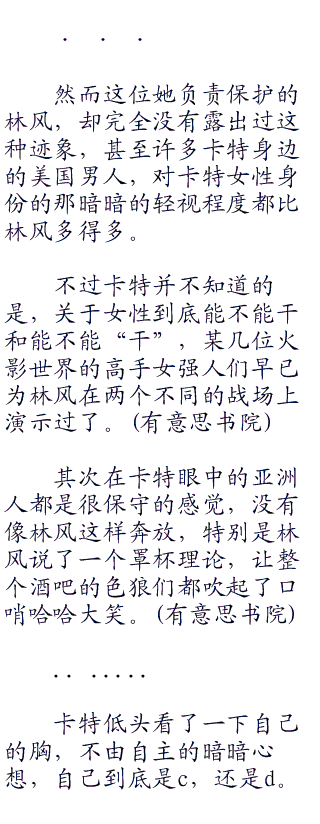 . . .
然而这位她负责保护的
林风，却完全没有露出过这
种迹象，甚至许多卡特身边
的美国男人，对卡特女性身
份的那暗暗的轻视程度都比
林风多得多。
不过卡特并不知道的
是，关于女性到底能不能干
和能不能“干”，某几位火
影世界的高手女强人们早已
为林风在两个不同的战场上
演示过了。(有意思书院)
其次在卡特眼中的亚洲
人都是很保守的感觉，没有
像林风这样奔放，特别是林
风说了一个罩杯理论，让整
个酒吧的色狼们都吹起了口
哨哈哈大笑。(有意思书院)
.. .....
卡特低头看了一下自己
的胸，不由自主的暗暗心
想，自己到底是c，还是d。